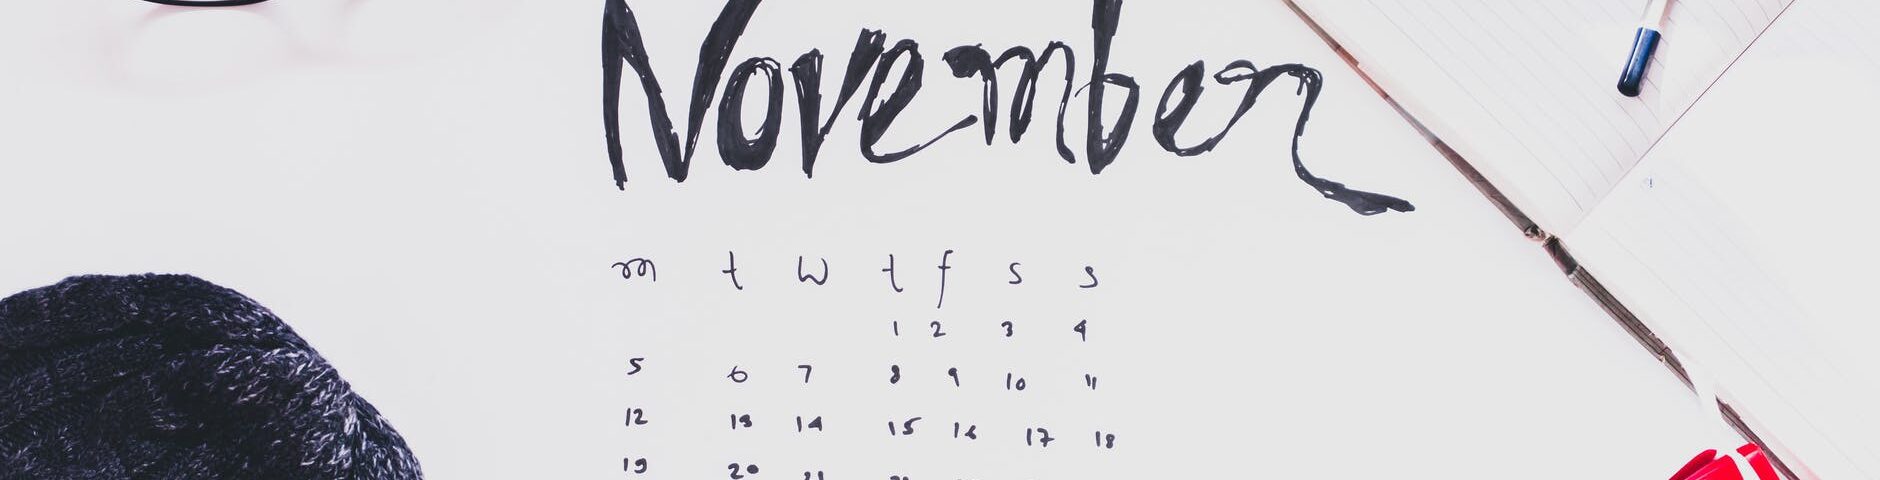 November
m t w t f s s
1 2 3 4
5 6 7 8 9 10 11
12 13 14 15 16 17 18
19 20